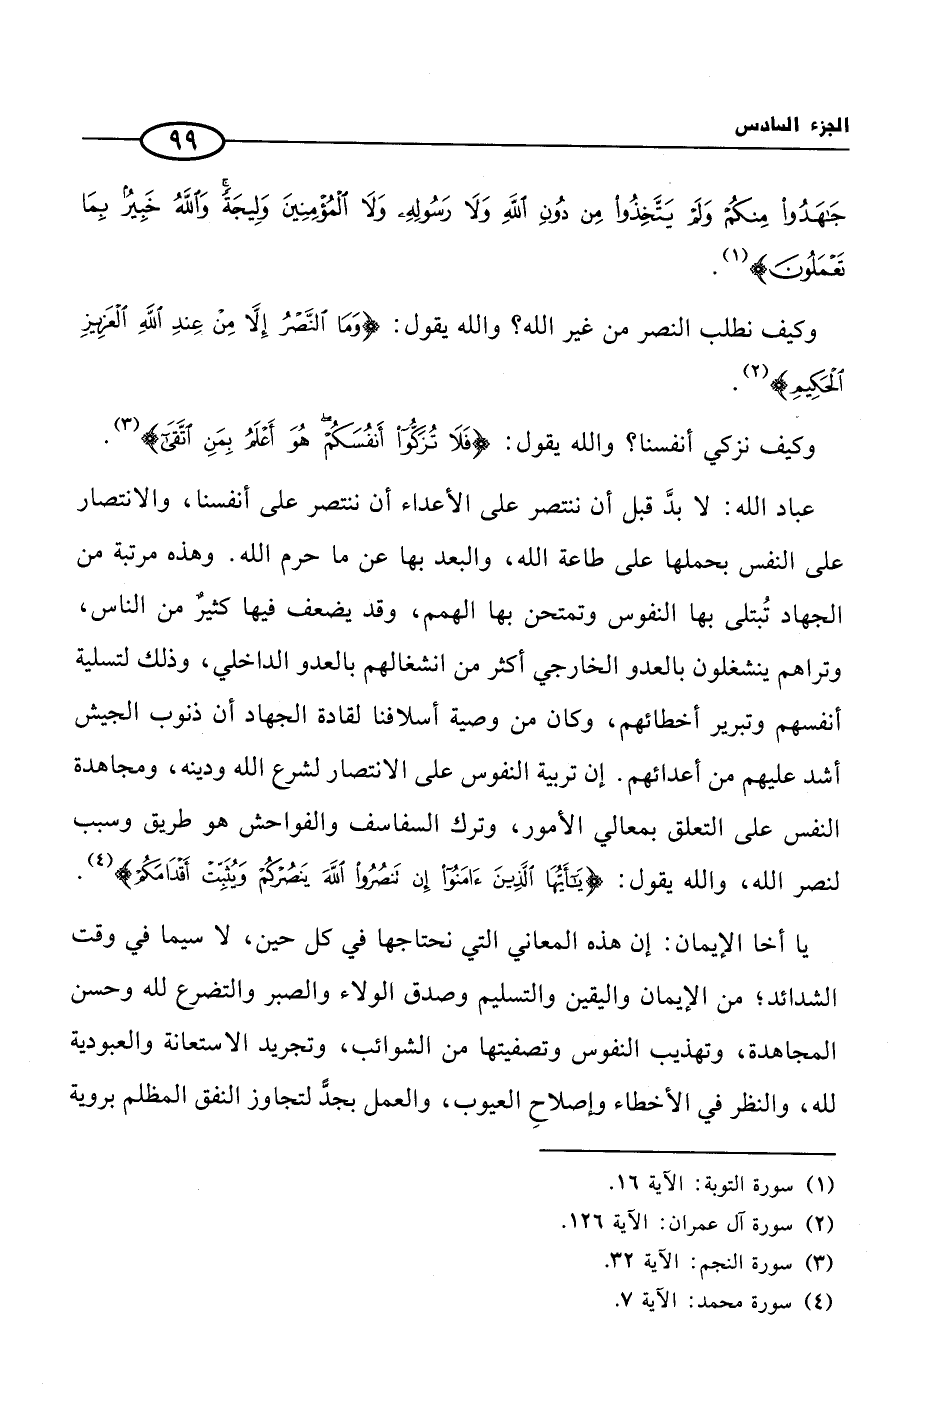 الجزء السادس
٩٩
جَٰهَدُوا۟ مِنكُمْ وَلَمْ يَتَّخِذُوا۟ مِن دُونِ ٱللَّهِ وَلَا رَسُولِهِۦ وَلَا ٱلْمُؤْمِنِينَ وَلِيجَةً ۚ وَٱللَّهُ خَبِيرٌۢ بِمَا
تَعْمَلُونَ﴾(١).
وكيف نطلب النصر من غير الله؟ والله يقول: ﴿وَمَا ٱلنَّصْرُ إِلَّا مِنْ عِندِ ٱللَّهِ ٱلْعَزِيزِ
ٱلْحَكِيمِ﴾(٢).
وكيف نزكي أنفسنا؟ والله يقول: ﴿فَلَا تُزَكُّوٓا۟ أَنفُسَكُمْ ۖ هُوَ أَعْلَمُ بِمَنِ ٱتَّقَىٰٓ﴾(٣).
عباد الله: لا بدَّ قبل أن ننتصر على الأعداء أن ننتصر على أنفسنا، والانتصار
على النفس بحملها على طاعة الله، والبعد بها عن ما حرم الله. وهذه مرتبة من
الجهاد تُبتلى بها النفوس وتمتحن بها الهمم، وقد يضعف فيها كثيرٌ من الناس،
وتراهم ينشغلون بالعدو الخارجي أكثر من انشغالهم بالعدو الداخلي، وذلك لتسلية
أنفسهم وتبرير أخطائهم، وكان من وصية أسلافنا لقادة الجهاد أن ذنوب الجيش
أشد عليهم من أعدائهم. إن تربية النفوس على الانتصار لشرع الله ودينه، ومجاهدة
النفس على التعلق بمعالي الأمور، وترك السفاسف والفواحش هو طريق وسبب
لنصر الله، والله يقول: ﴿يَٰٓأَيُّهَا ٱلَّذِينَ ءَامَنُوٓا۟ إِن تَنصُرُوا۟ ٱللَّهَ يَنصُرْكُمْ وَيُثَبِّتْ أَقْدَامَكُمْ﴾(٤).
يا أخا الإيمان: إن هذه المعاني التي نحتاجها في كل حين، لا سيما في وقت
الشدائد؛ من الإيمان واليقين والتسليم وصدق الولاء والصبر والتضرع لله وحسن
المجاهدة، وتهذيب النفوس وتصفيتها من الشوائب، وتجريد الاستعانة والعبودية
لله، والنظر في الأخطاء وإصلاحِ العيوب، والعمل بجدٍّ لتجاوز النفق المظلم بروية
(١) سورة التوبة: الآية ١٦.
(٢) سورة آل عمران: الآية ١٢٦.
(٣) سورة النجم: الآية ٣٢.
(٤) سورة محمد: الآية ٧.